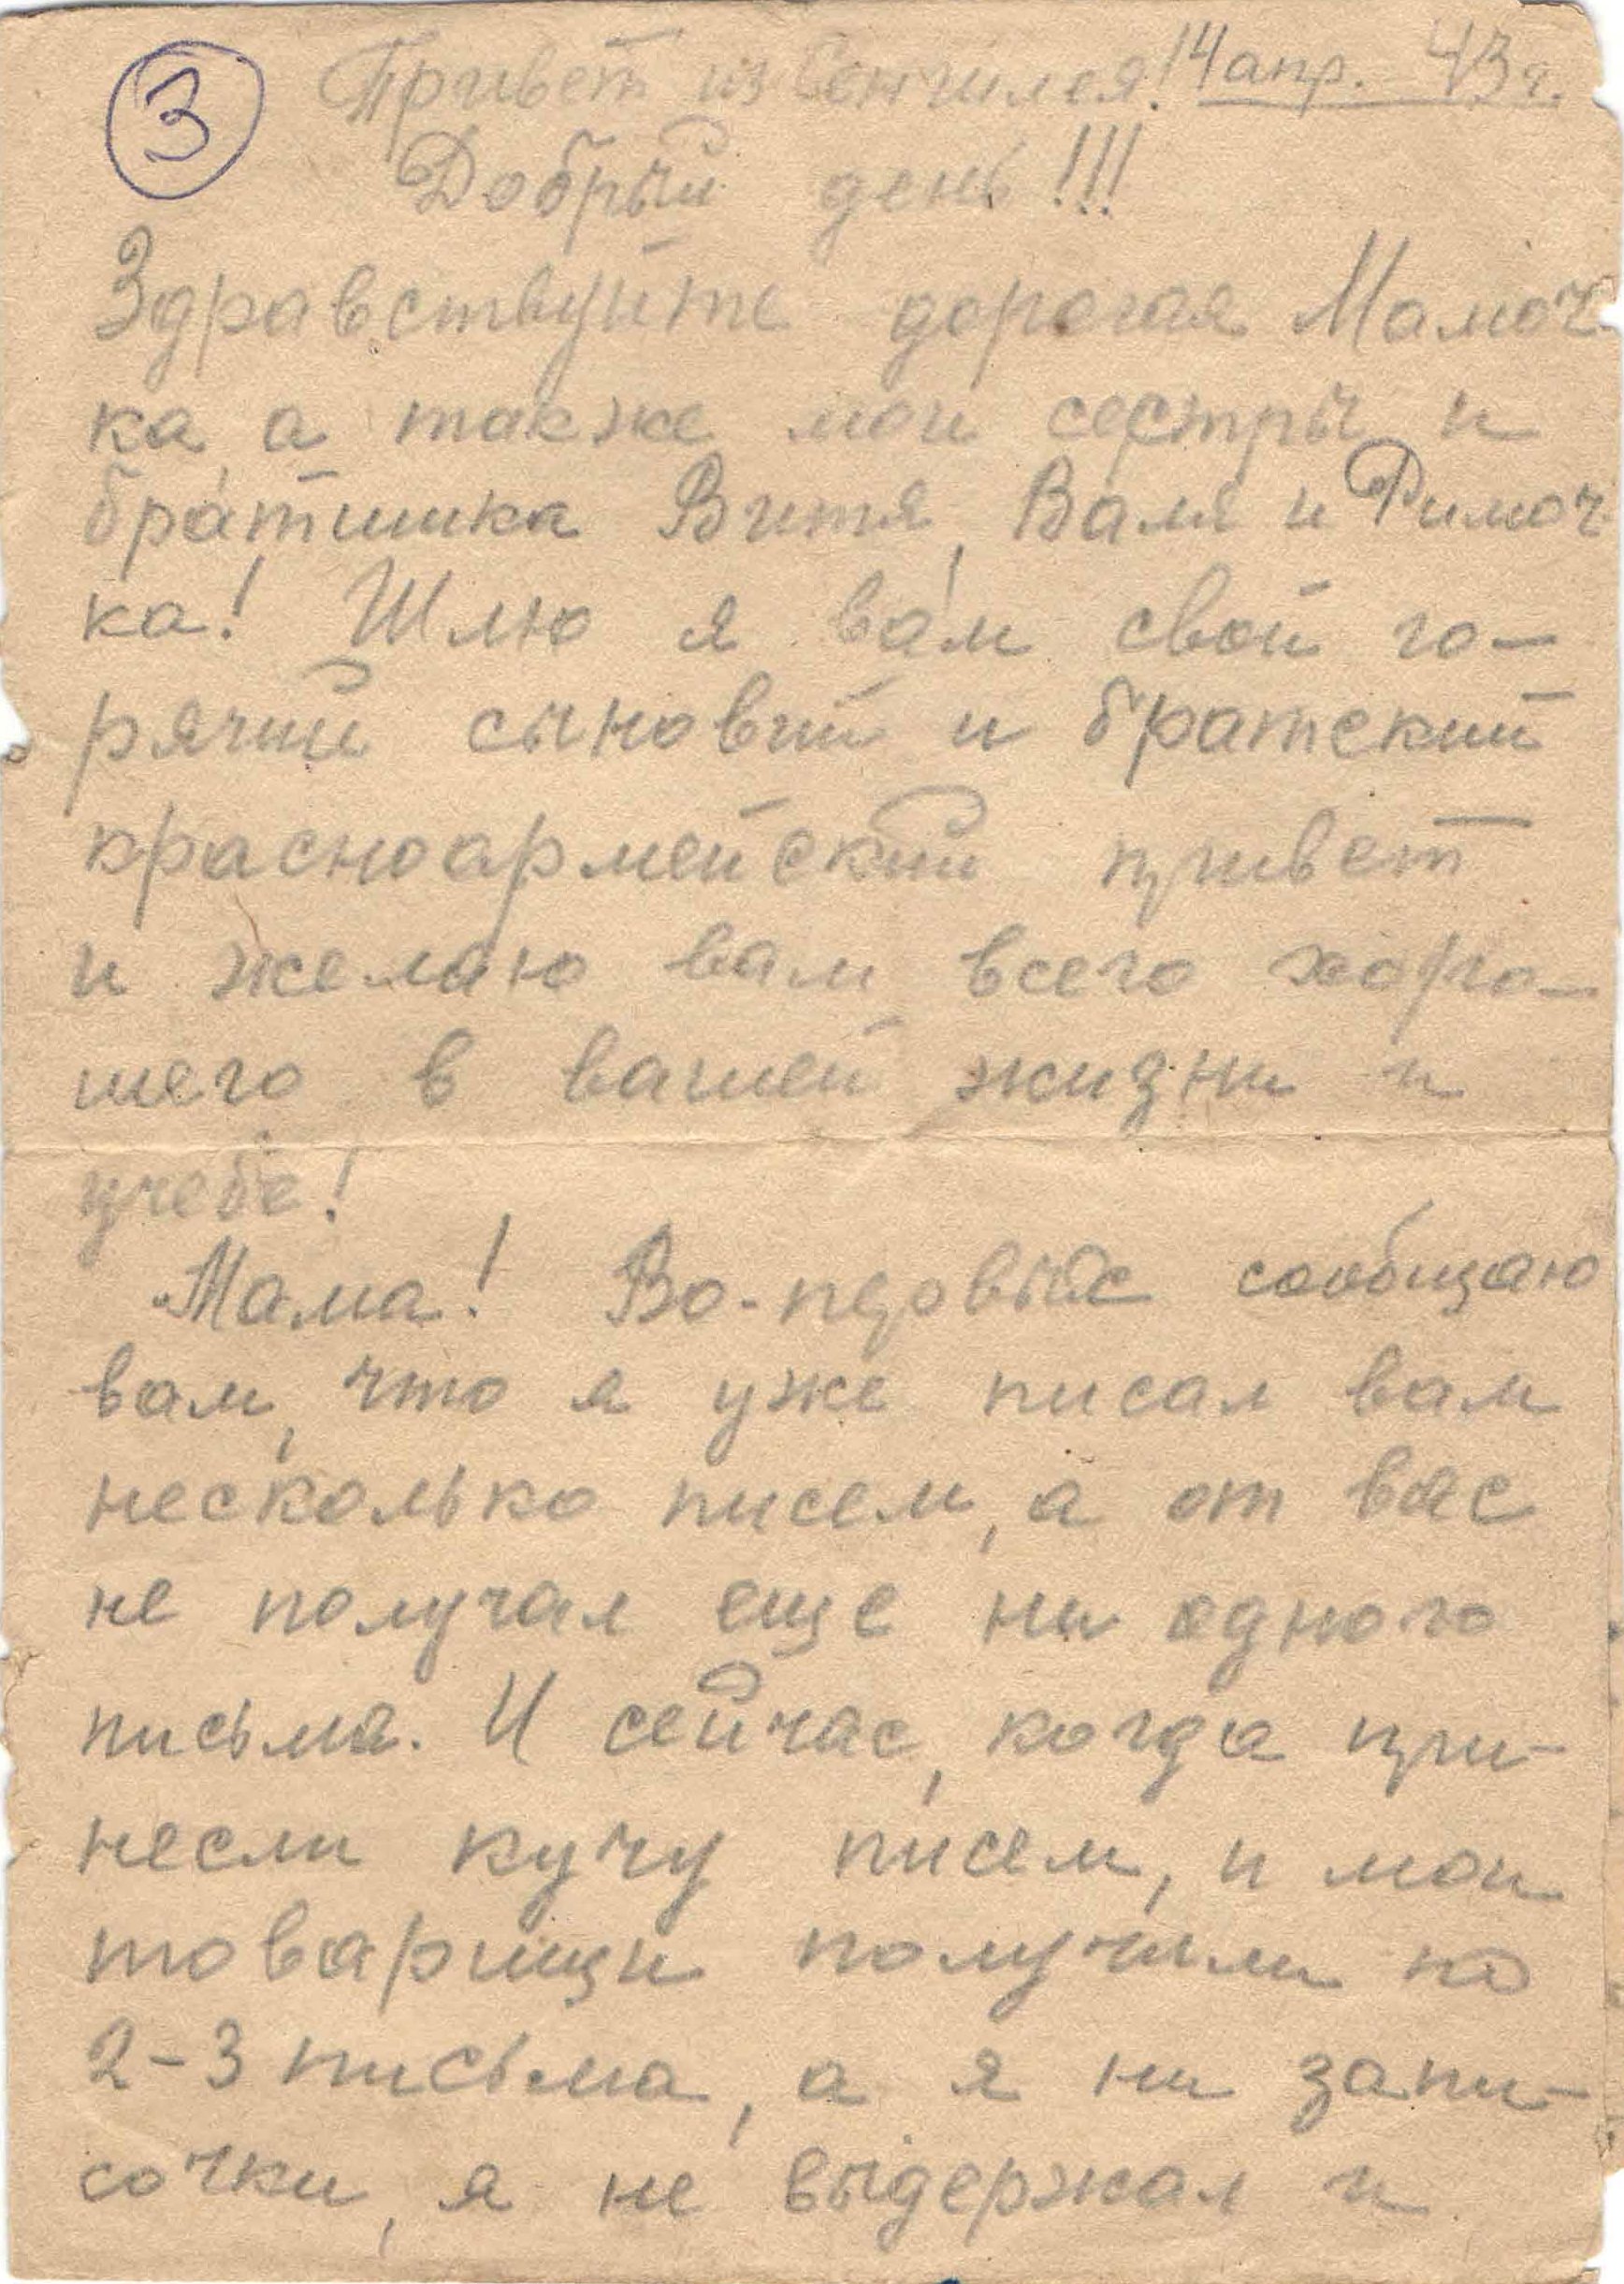 3
Привет из Сенгилея! 14 апр. 43 г.
Добрый день!!!
Здравствуйте дорогая Мамоч-
ка, а также мои сестры и
братишка Витя, Валя и Римоч-
ка! Шлю я вам свой го-
рячий сыновий и братский
красноармейский привет
и желаю вам всего хоро-
шего в вашей жизни и
учебе!
Мама! Во-первых сообщаю
вам, что я уже писал вам
несколько писем, а от вас
не получал еще ни одного
письма. И сейчас, когда при-
несли кучу писем, и мои
товарищи получили по
2-3 письма, а я ни запи-
сочки, я не выдержал и